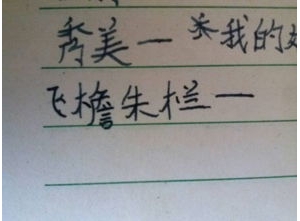 秀美一米我的
飞檐朱栏一